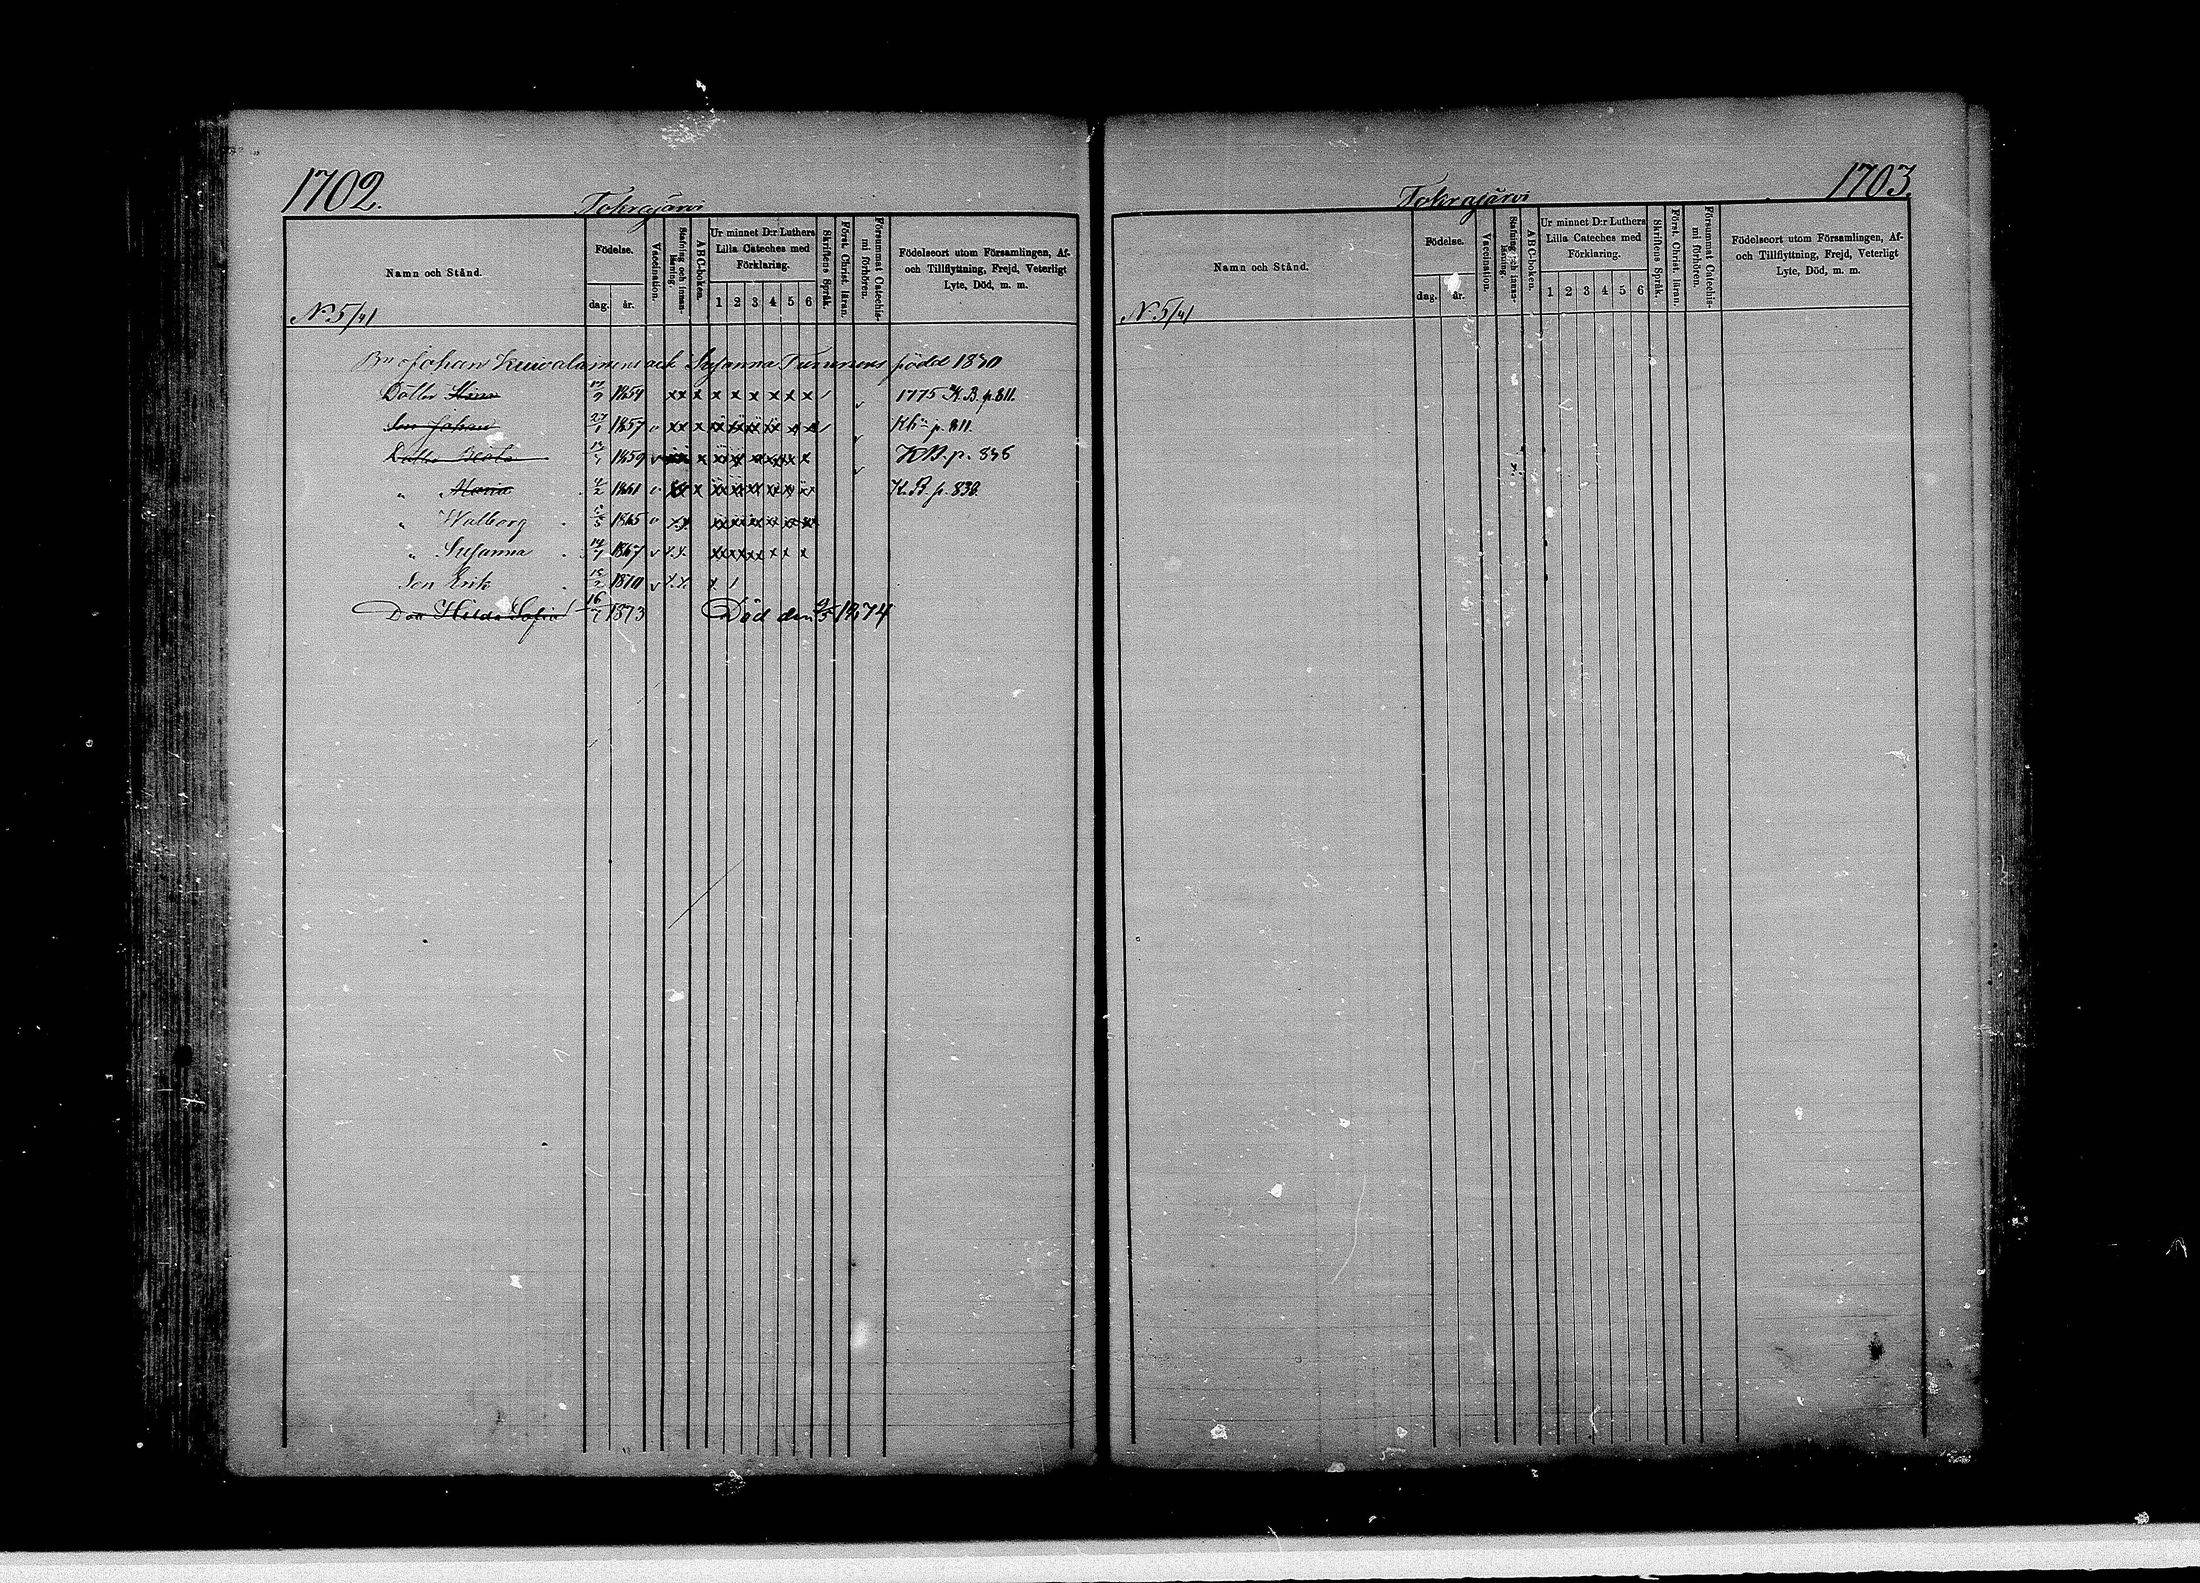 1702.
Tokrajärvi
Namn och Stånd.
Födelse.
dag.
år.
Vaccination.
Stafning och innan-läsning.
ABC-boken.
Ur minnet D:r Luthers Lilla Cateches med Förklaring.
1 2 3 4 5 6
Skriftens Språk.
Först. Christ. läran.
Försummat Catechis-mi förhören.
Födelseort utom Församlingen, Af- och Tillflyttning, Frejd, Veterligt Lyte, Död, m. m.
N 5/41
Bn Johan Kuivalainens ach Susanna Turunens född 1830
Dotter Stina 1854 xx x x x x x x x 1775 K.B. p. 811.
Son Johan 27/1 1857 Kb p. 811.
Dotter 1859 K.B. p. 836
" " Maria 4/2 1861 K.B. p. 830.
" Walborg 1865
" Susanna 1867
Son Erik 1870
Dott Hilda Sofia 16/7 1873 Död den 9/5 1874
1703.
Tokrajärvi
Namn och Stånd.
Födelse.
dag.
år.
Vaccination.
Stafning och innan-läsning.
ABC-boken.
Ur minnet D:r Luthers Lilla Cateches med Förklaring.
1 2 3 4 5 6
Skriftens Språk.
Först. Christ. läran.
Försummat Catechis-mi förhören.
Födelseort utom Församlingen, Af- och Tillflyttning, Frejd, Veterligt Lyte, Död, m. m.
N 5/41